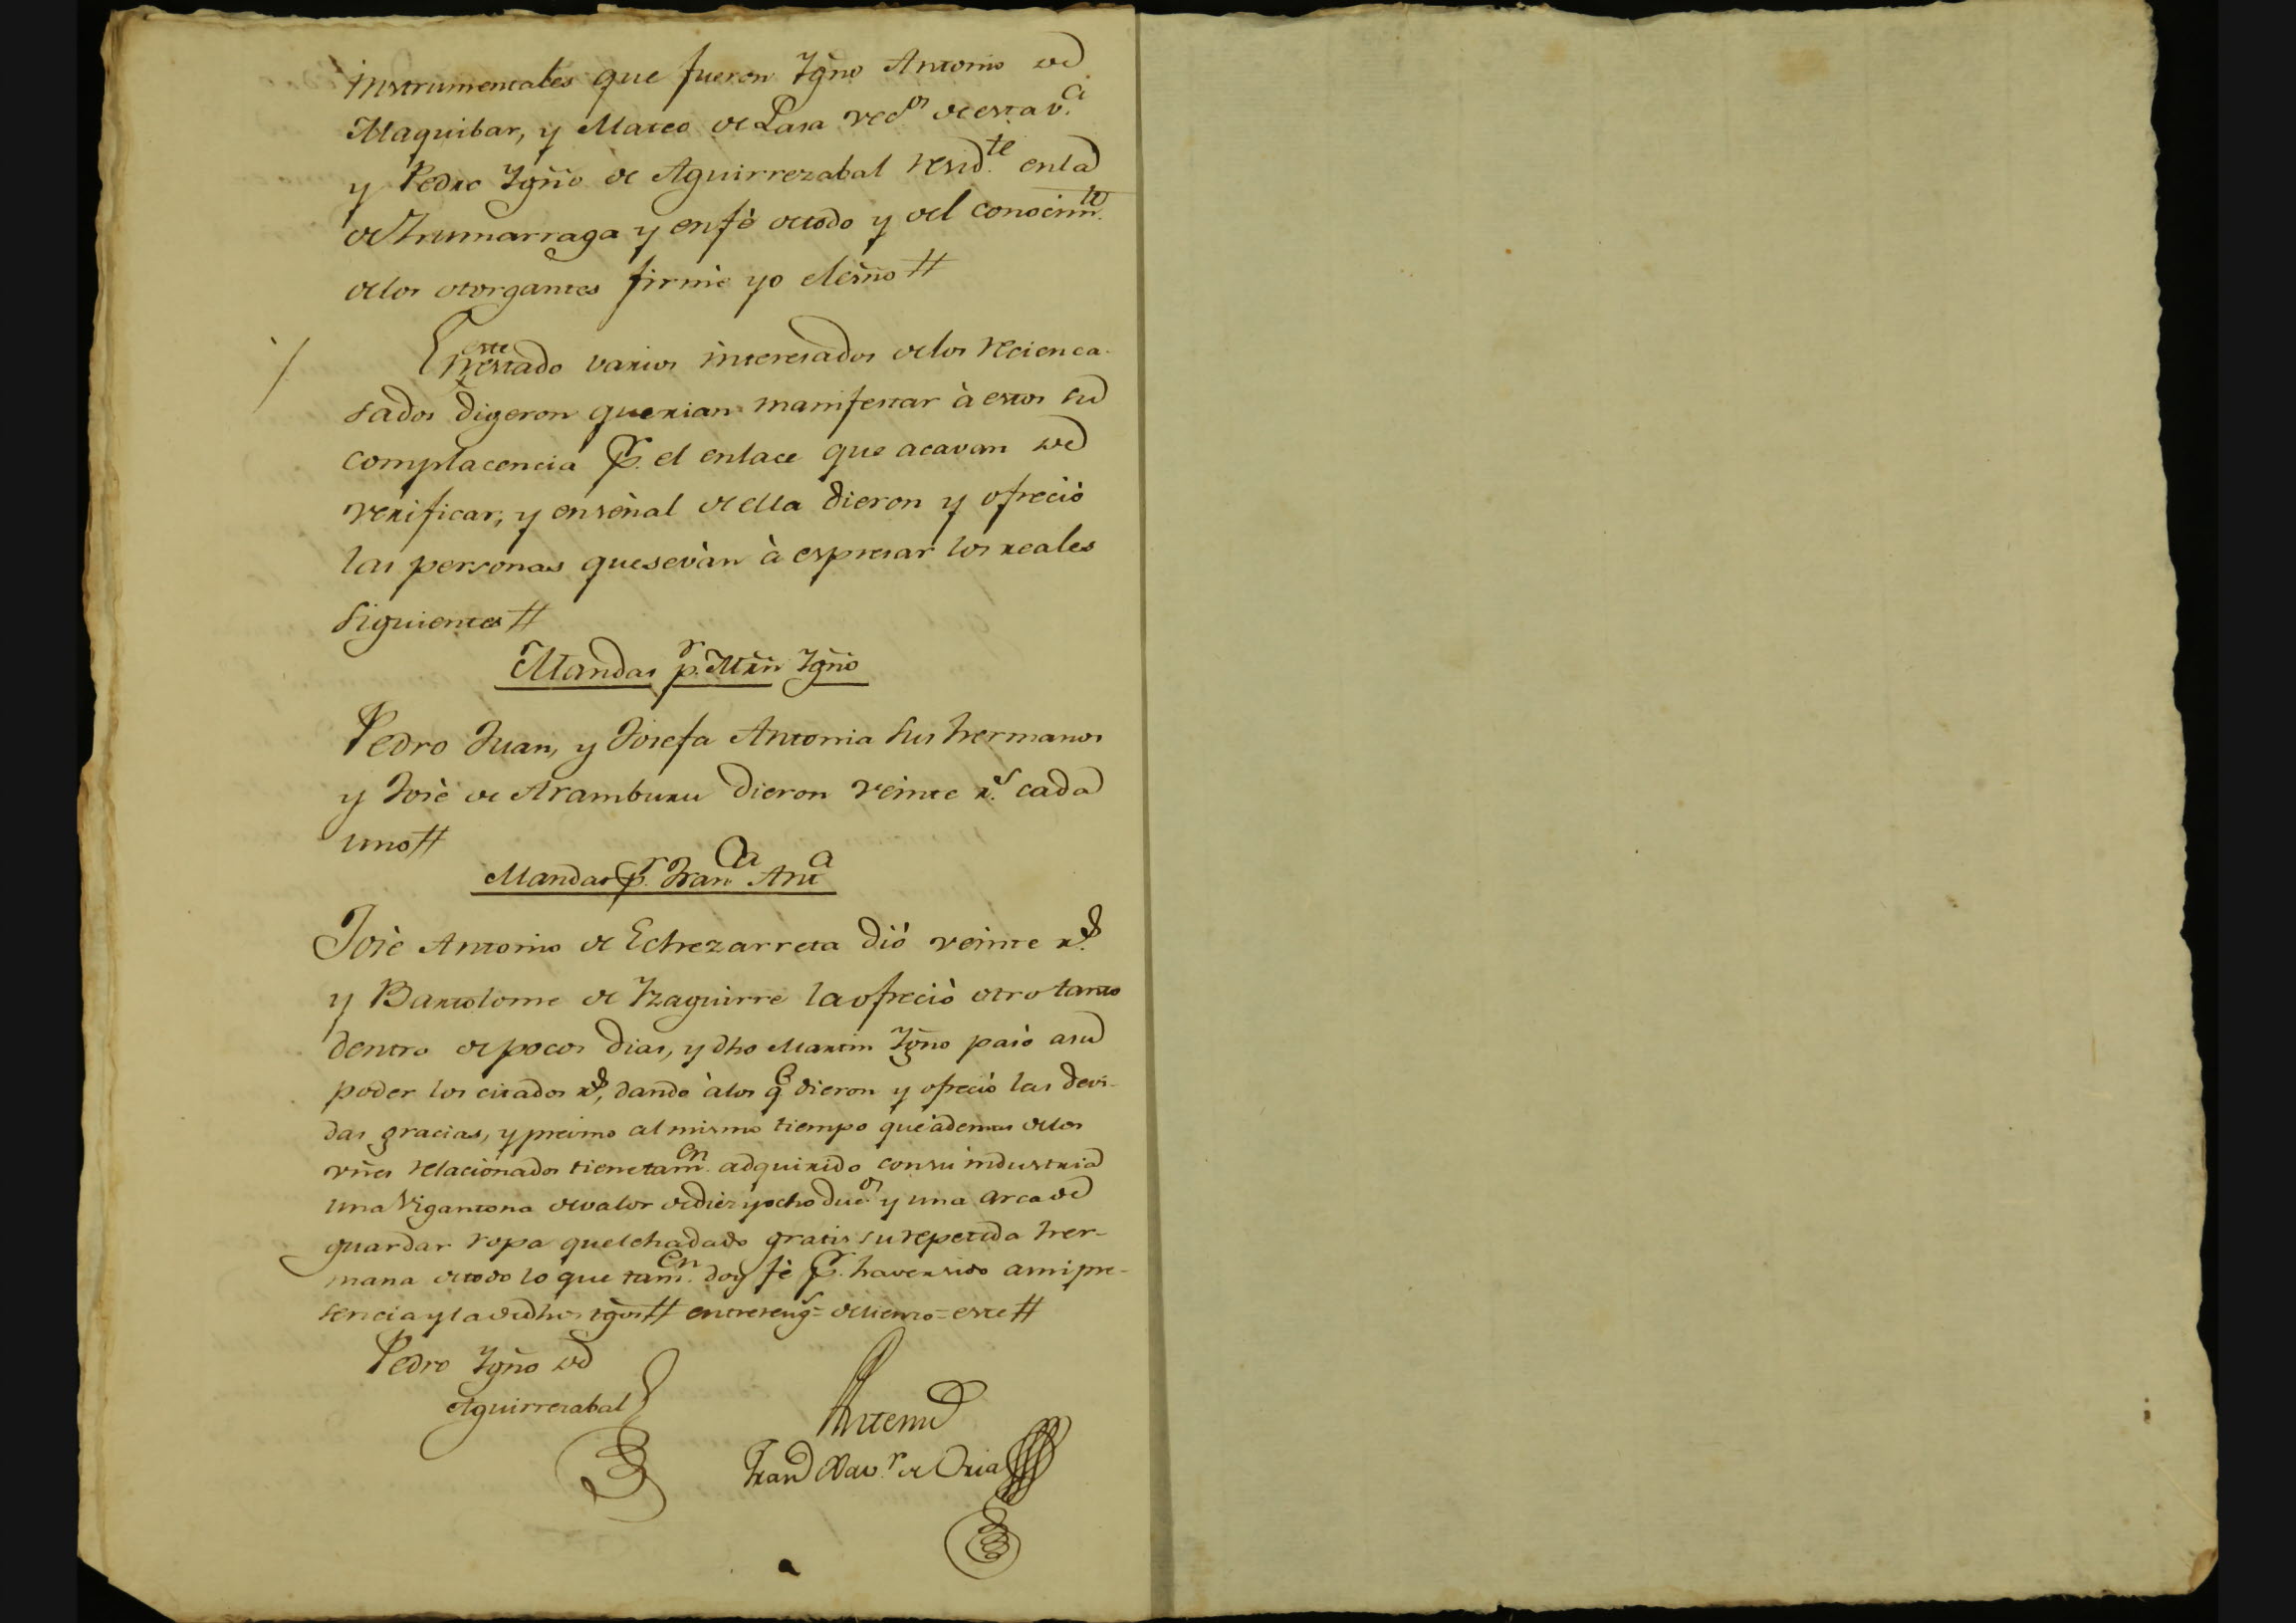 instrumentales que fueron Ygño Antonio de
Maquibar, y Mateo de Lasa vecos de esta va
y Pedro Ygño de Aguirrezabal residte en la
de Zumarraga y en fè de todo y del conocimto
de los otorgantes firmè yo el esño #
En este estado varios interesados de los recien ca-
sados digeron querian manifestar à estos su
complacencia pr el enlace que acavan de
verificar, y en señal de ella dieron y ofreciò
las personas que se vàn à espresar los reales
siguientes #
Mandas pr Mrñ Ygño
Pedro Juan, y Josefa Antonia sus hermanos
y Josè de Aramburu dieron veinte rs cada
uno #
Mandas pr Franca Anta
Josè Antonio de Echezarreta diò veinte rs
y Bartolome de Yzaguirre la ofreciò otro tanto
dentro de pocos dias, y dho Martin Ygño pasò a su
poder los citados rs, dando à los q dieron y ofreciò las devi-
das gracias, y previno al mismo tiempo que àdemas de los
vñes relacionados tiene tamen adquirido con su industria
una Vigantona de valor de diez y ocho ducos y una arca de
guardar ropa que le ha dado gratis su repetida her-
mana de todo lo que tamen doy fè pr haver sido a mi pre-
sencia y la de dhos tgos # entrerengs = de lienzo = este #
Pedro Ygño de
Aguirrezabal
Ante mi
Fran Xavr de Oria